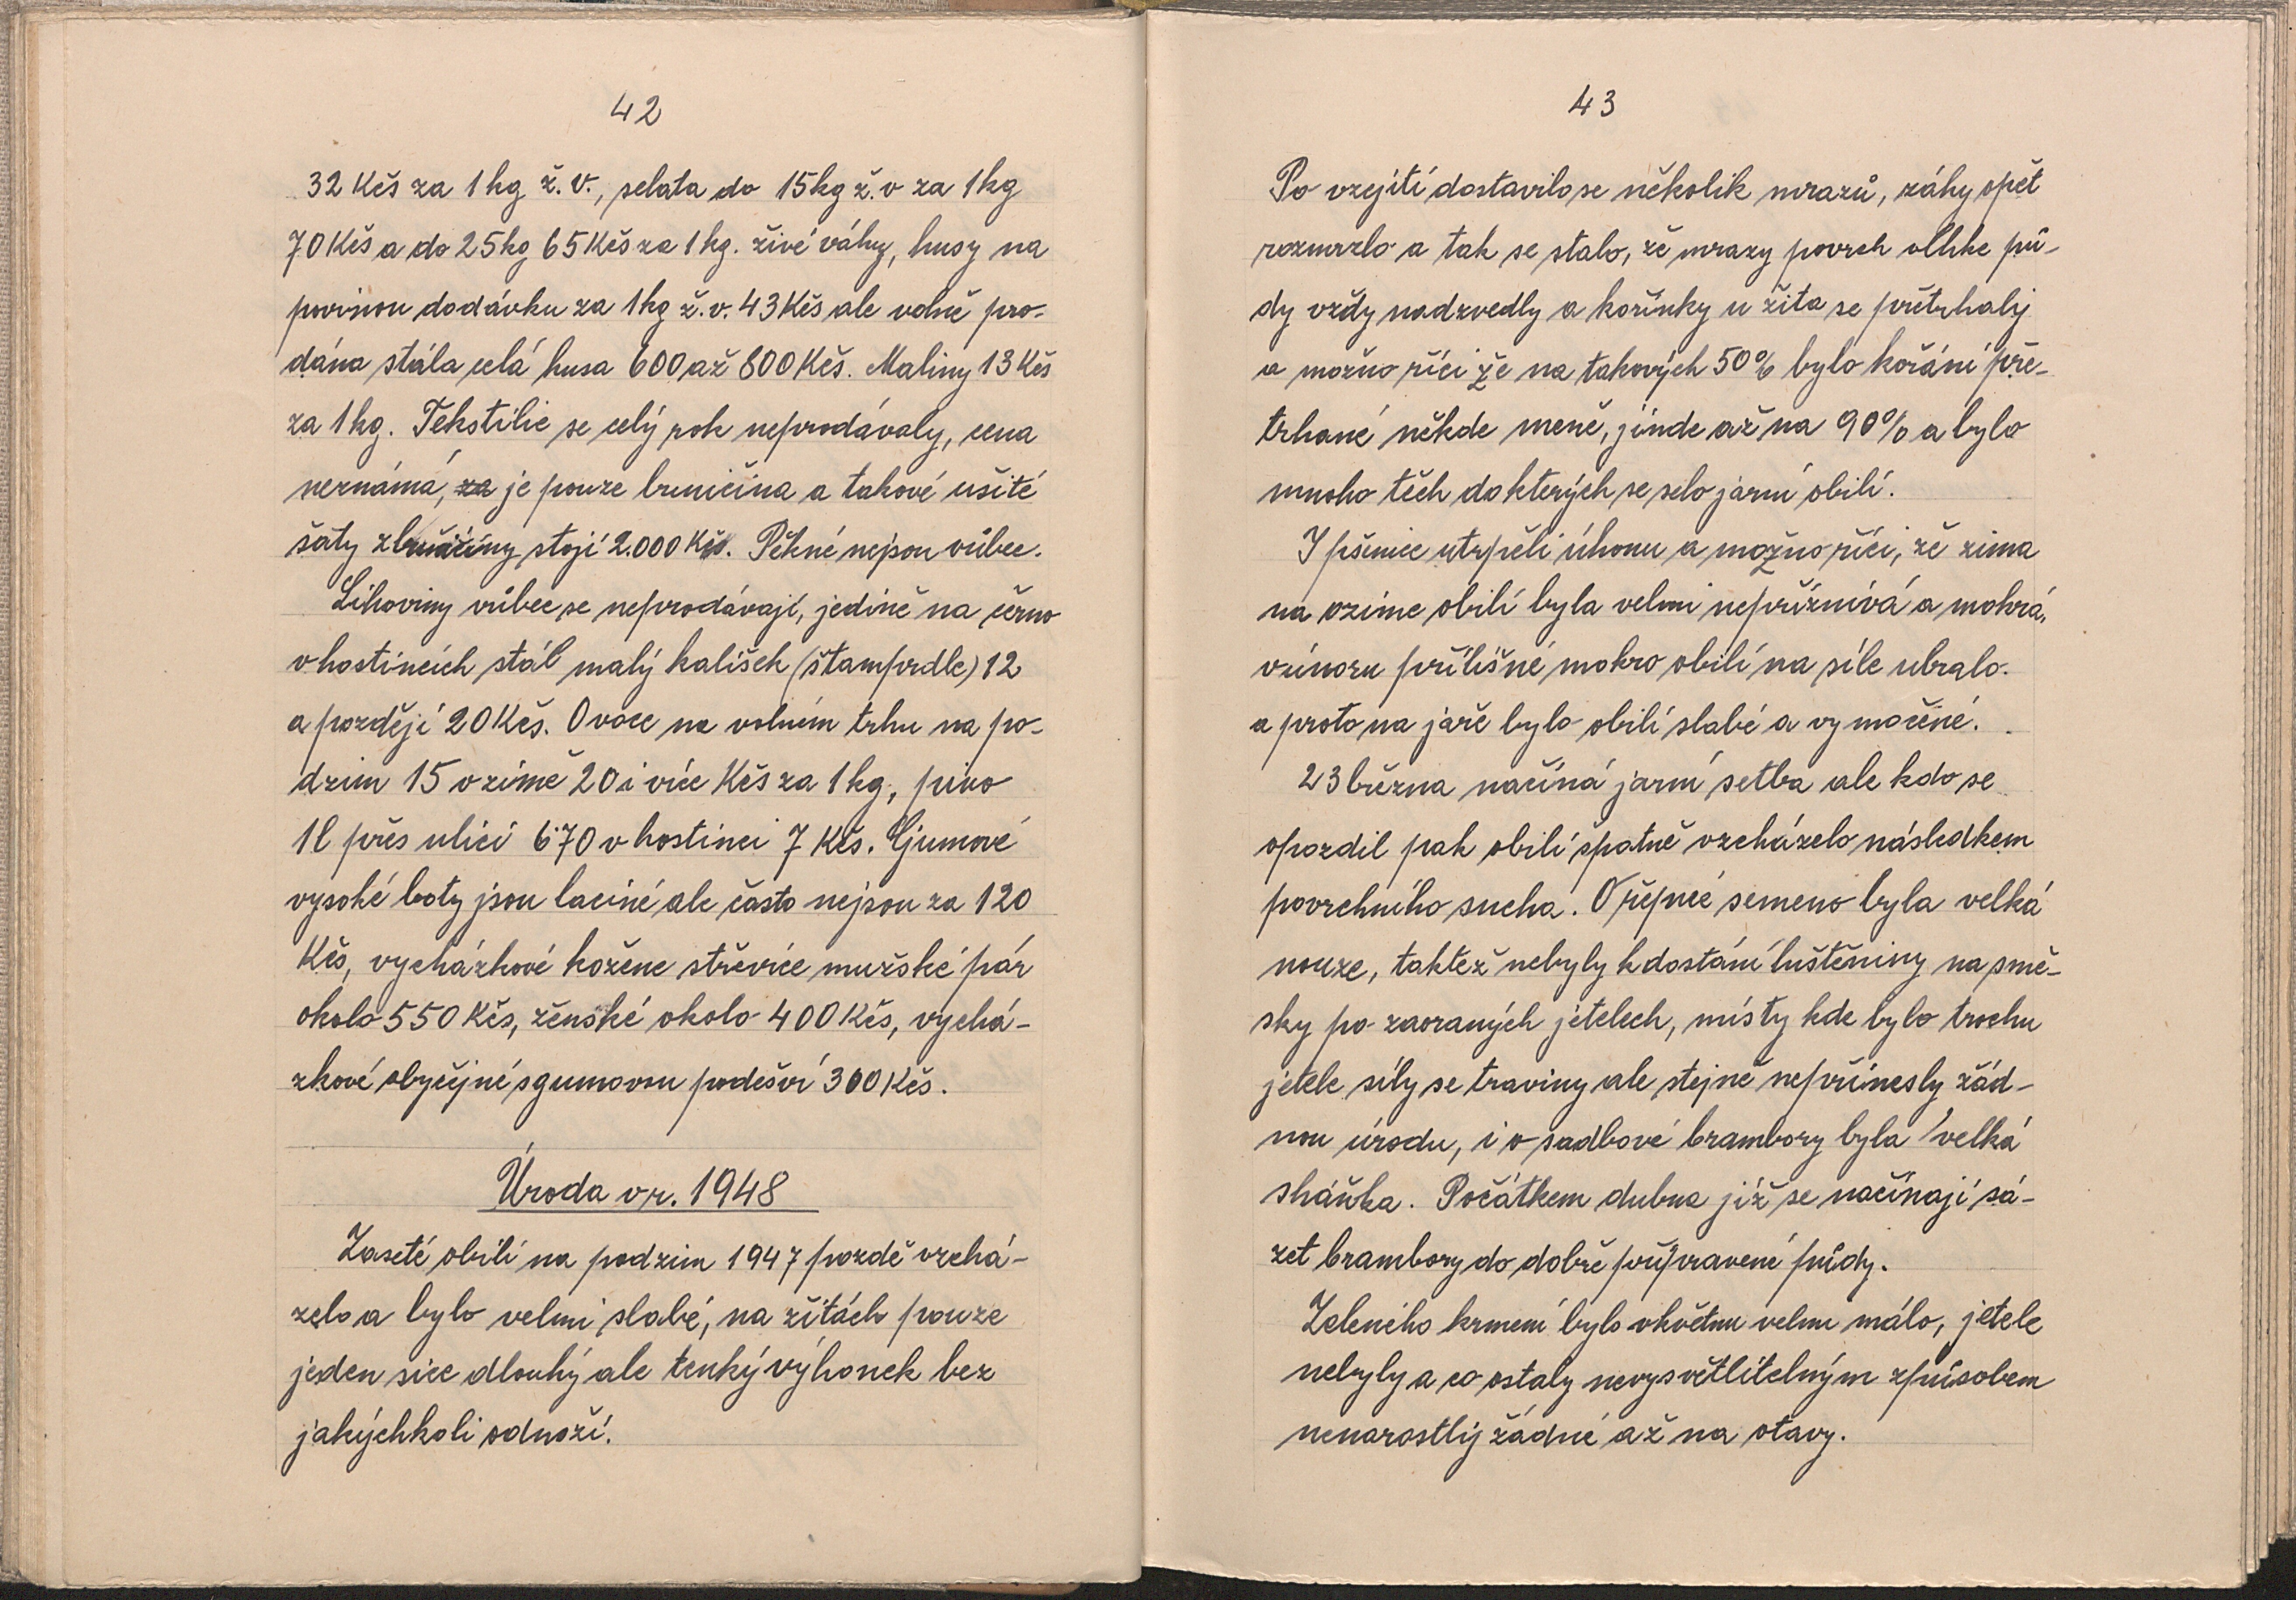 42
32 Kčs za 1 kg ž. v., selata do 15 kg ž. v za 1 kg
70 Kčs a do 25 kg 65 Kčs za 1 kg. živé váhy, husy na
povinou dodávku za 1 kg ž. v. 43 Kčs ale volně pro-
dána stála celá husa 600 až 800 Kčs. Maliny 13 Kčs
za 1 kg. Tekstilie se celý rok neprodávaly, cena
neznámá, za je pouze buničina a takové ušité
šaty z buničiny stojí 2.000 Kčs. Pěkné nejsou vůbec.
Lihoviny vůbec se neprodávají, jedině na černo
v hostincích stál malý kalíšek (štamprdle) 12
a později 20 Kčs. Ovoce na volném trhu na po-
dzim 15 v zimě 20 i více Kčs za 1 kg, pivo
1 l přes ulici 6·70 v hostinci 7 Kčs. Gumové
vysoké boty jsou laciné ale často nejsou za 120
Kčs, vycházkové kožene střevíce mužské pár
okolo 550 Kčs, ženské okolo 400 Kčs, vychá-
zkové obyčejné s gumovou podešví 300 Kčs.
Úroda v r. 1948
Zaseté obilí na podzim 1947 pozdě vzchá-
zelo a bylo velmi slabé, na žitách pouze
jeden sice dlouhý ale tenký výhonek bez
jakýchkoli odnoží.
43
Po vzejití dostavilo se několik mrazů, záhy opět
rozmrzlo a tak se stalo, že mrazy povrch vlhke pů-
dy vždy nadzvedly a kořínky u žita se přetrhaly
a možno říci že na takových 50% bylo kořání pře-
trhané někde meně, jinde až na 90% a bylo
mnoho těch do kterých se selo jarní obilí.
I pšenice utrpěli úhonu a možno říci, že zima
na ozime obilí byla velmi nepříznivá a mokrá,
v únoru přílišné mokro obilí na síle ubralo.
a proto na jaře bylo obilí slabé a vymočené.
23 března načíná jarní setba ale kdo se
opozdil pak obilí špatně vzcházelo následkem
povrchního sucha. O řepné semeno byla velká
nouze, taktež nebyly k dostání luštěniny na smě-
sky po zaoraných jetelech, místy kde bylo trochu
jetele síly se traviny ale stejně nepřinesly žád-
nou úrodu, i o sadbové brambory byla velká
sháňka. Počátkem dubna již se načínají sá-
zet brambory do dobře připravené půdy.
Zeleného krmení bylo v květnu velmi málo, jetele
nebyly a co ostaly nevysvětlitelným způsobem
nenarostly žádné až na otavy.